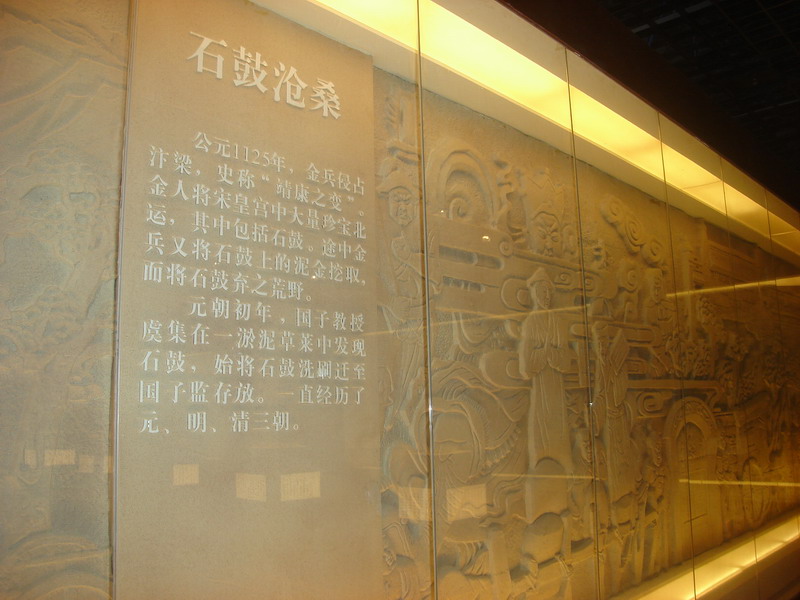 石鼓沧桑
公元1125年，金兵侵占
汴梁，史称“靖康之变”。
金人将宋皇宫中大量珍宝北
运，其中包括石鼓。途中金
兵又将石鼓上的泥金挖取，
而将石鼓弃之荒野。
元朝初年，国子教授
虞集在一淤泥草莱中发现
石鼓，始将石鼓洗刷迁至
国子监存放。一直经历了
元、明、清三朝。